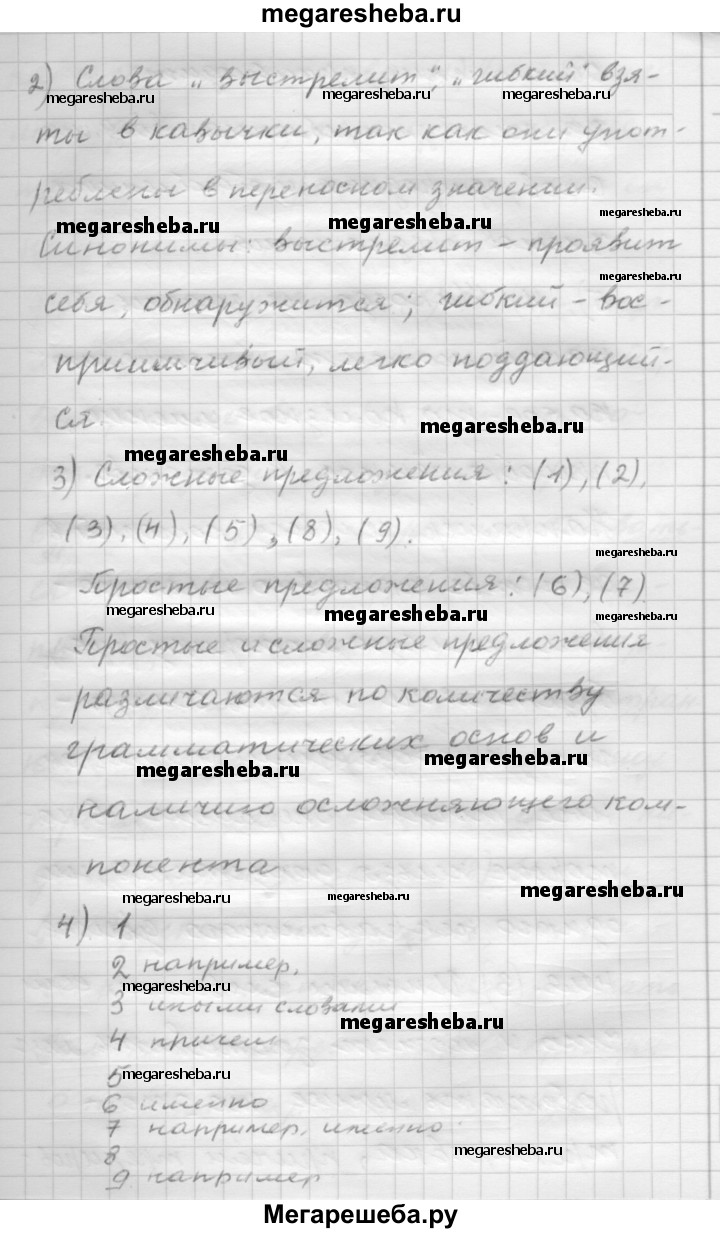 megaresheba.ru
2) Слова „выстрелит“, „гибкий“ взя-
megaresheba.ru megaresheba.ru megaresheba.ru
ты в кавычки, так как они упот-
реблены в переносном значении.
megaresheba.ru megaresheba.ru megaresheba.ru
Синонимы: выстрелит – проявит
megaresheba.ru
себя, обнаружится; гибкий – вос-
приимчивый, легко поддающий-
ся.
megaresheba.ru
megaresheba.ru
3) Сложные предложения: (1), (2),
(3), (4), (5), (8), (9).
megaresheba.ru
Простые предложения: (6), (7).
megaresheba.ru megaresheba.ru megaresheba.ru
Простые и сложные предложения
различаются по количеству
грамматических основ и
megaresheba.ru megaresheba.ru
наличию осложняющего ком-
понента
megaresheba.ru megaresheba.ru megaresheba.ru
4) 1
2 например,
megaresheba.ru
3 иными словами
megaresheba.ru
4 причем
5
megaresheba.ru
6 именно
7 например, именно
8
megaresheba.ru
9 например
Мегарешеба.ру